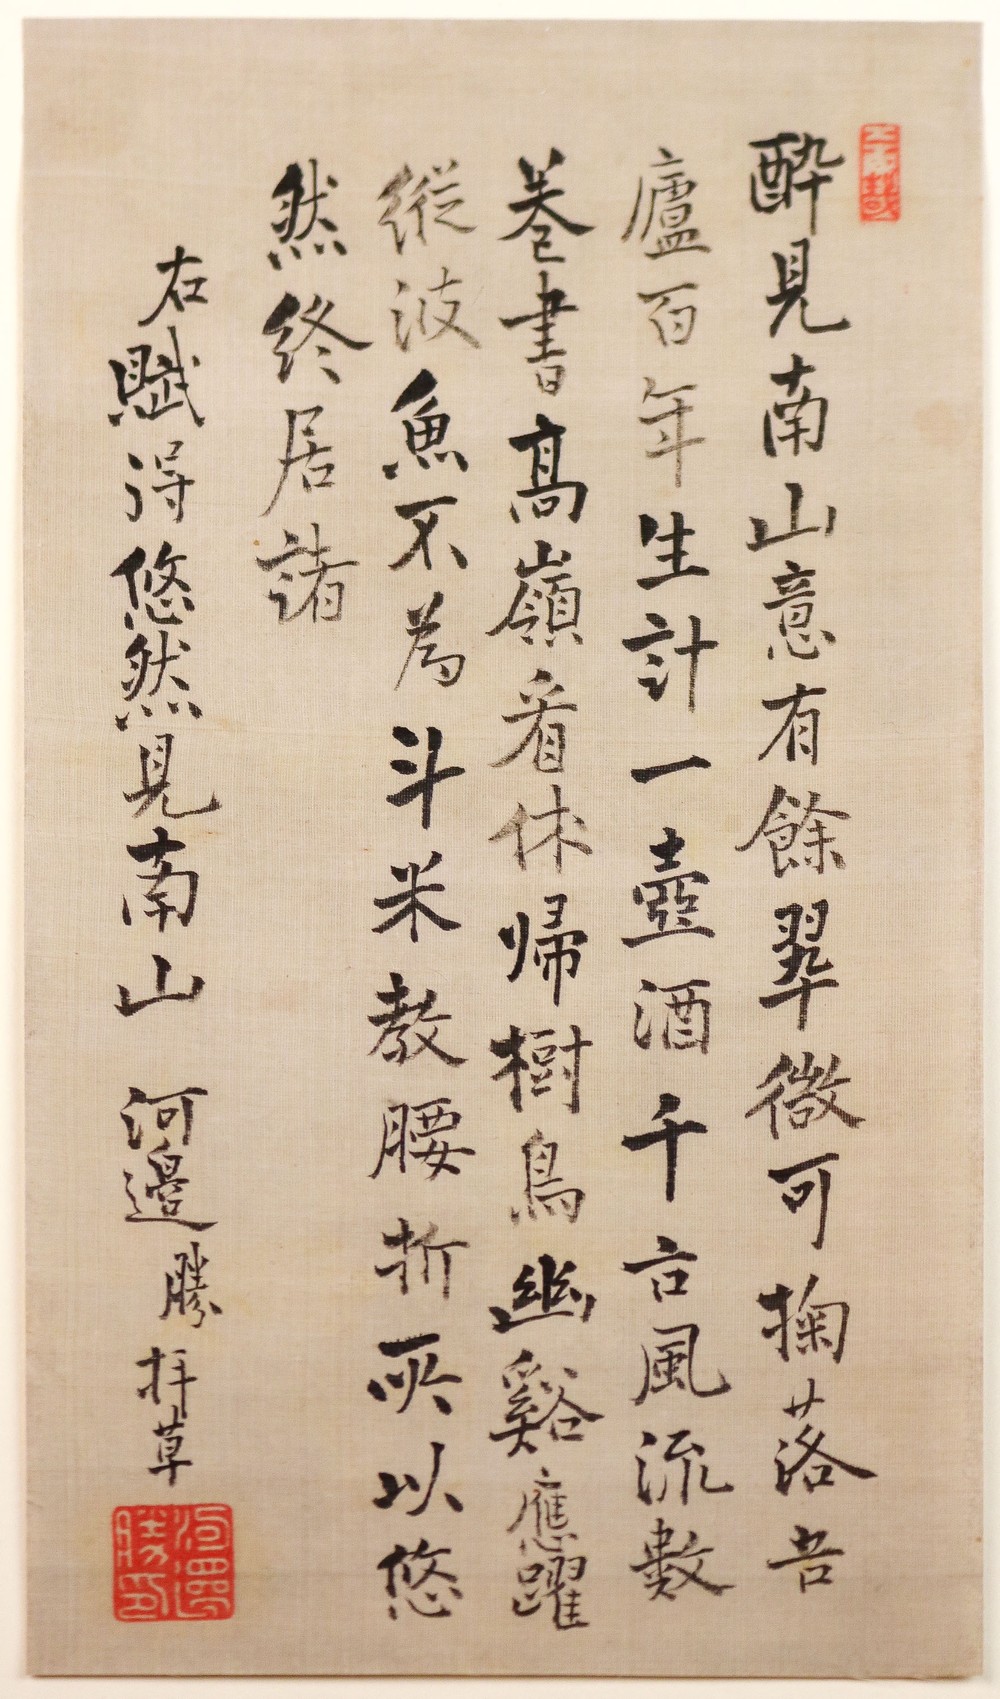 酔見南山意有餘翠微可掬落吾
廬百年生計一壺酒千古風流數
巻書高嶺看休帰樹鳥幽谿應躍
縦波魚不為斗米教腰折所以悠
然終居諸
右賦得悠然見南山 河邊勝拝草
河邊勝印